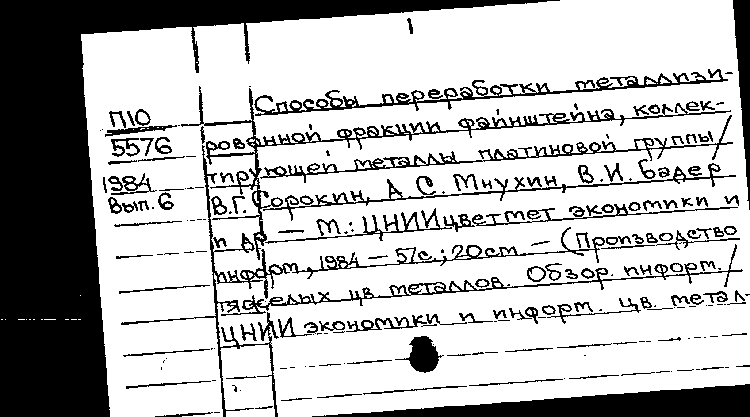 Способы переработки металлизи-
П10
5576
1984
Вып. 6
рованной фракции файнштейна, коллек-
тирующей металлы платиновой группы/
В.Г. Сорокин, А.С. Мнухин, В.И. Бадер
и др. — М.: ЦНИИцветмет экономики и
информ., 1984 — 57с.; 20см. — (Производство
тяжелых цв. металлов. Обзор. информ./
ЦНИИ экономики и информ. цв. метал-